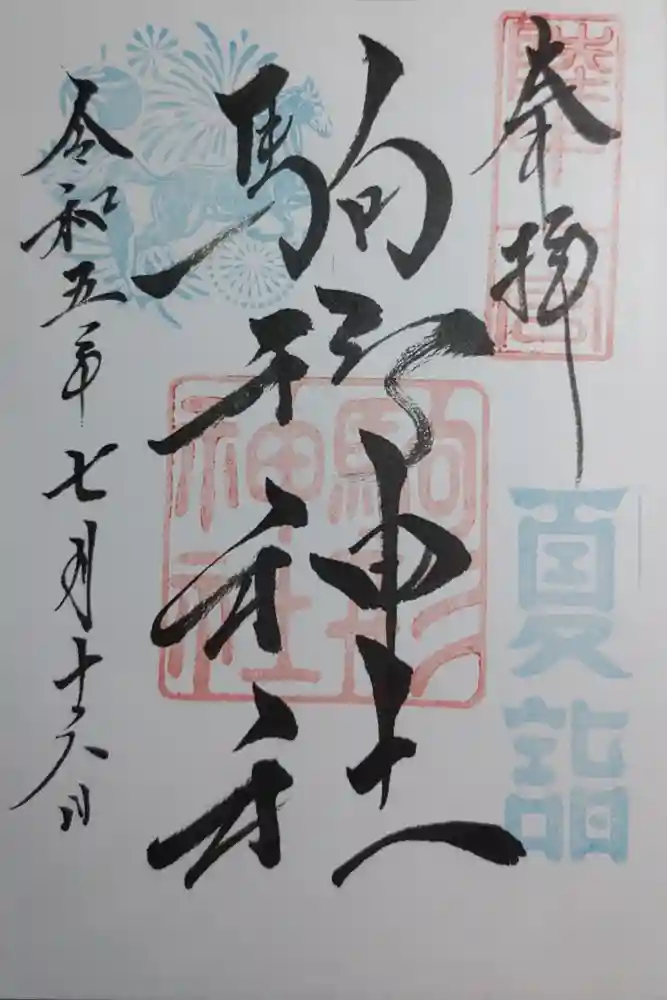 奉拝
陸中一宮
夏詣
駒形神社
駒形
神社
令和五年七月十六日